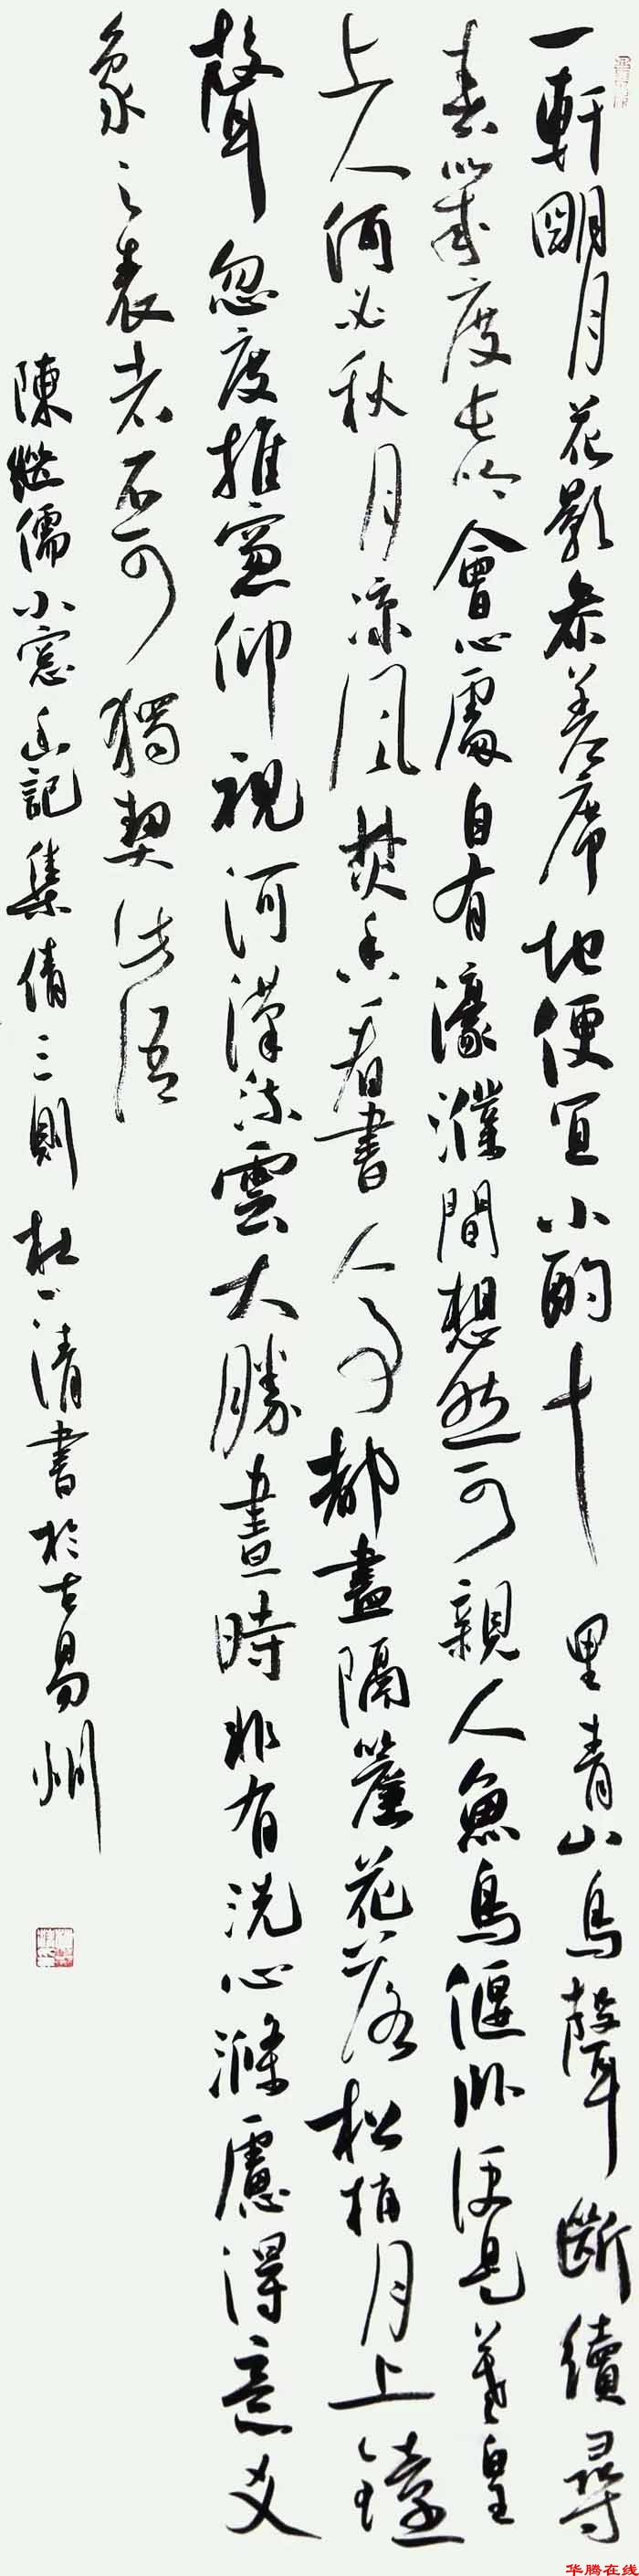 一軒明月花影參差席地便宜小酌十里青山鳥聲斷續尋
春幾度長吟會心處自有濠濮間想然可親人魚鳥偃卧便是羲皇
上人何必秋月凉風焚香看書人事都盡隔簾花落松梢月上鐘
聲忽度推窗仰視河漢流雲大勝晝時非有洗心滌慮得意爻
象之表者不可獨契此語
陳繼儒小窗幽記集倩三則杜清書於古易州
华腾在线